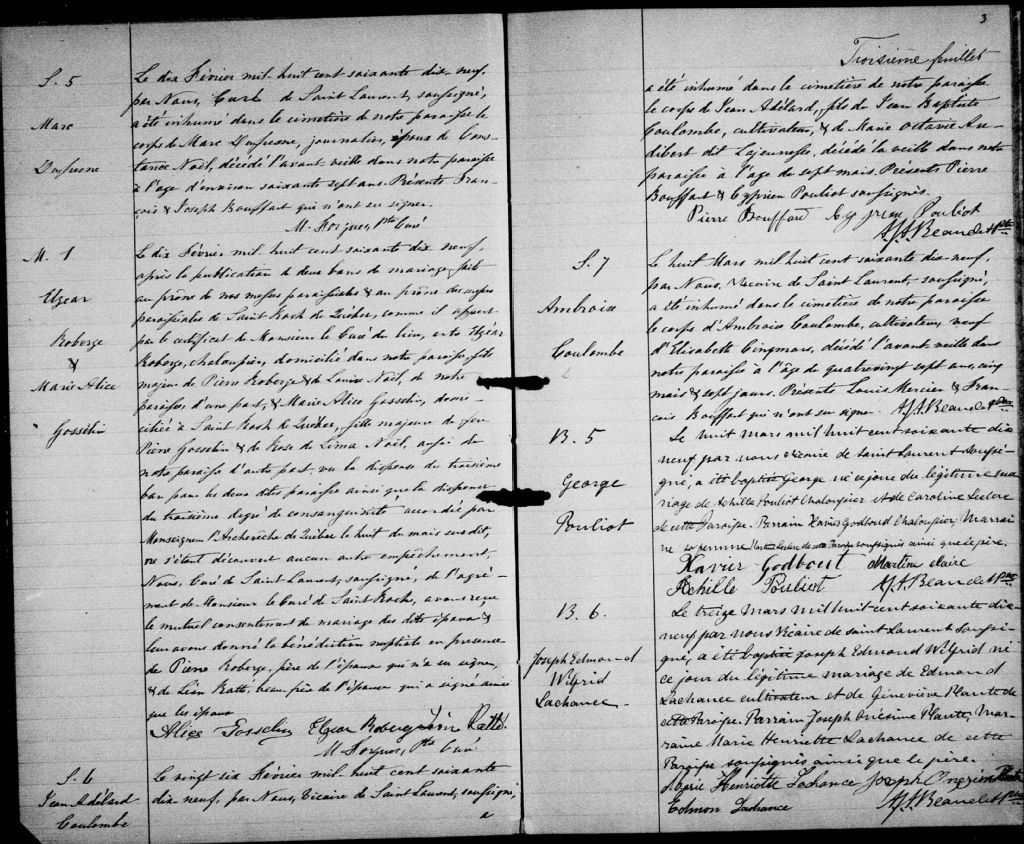 S. 5
Marc
Dufresne
Le dix Février mil huit cent soixante dix-neuf,
par Nous, Curé de Saint Laurent, soussigné,
a été inhumé dans le cimetière de notre paroisse le
corps de Marc Dufresne, journalier, époux de Cons-
tance Noël, décédé l'avant veille dans notre paroisse
à l'age d'environ soixante sept ans. Présents Fran-
çois & Joseph Bouffart qui n'ont su signer.
M. Forgues, Ptre Curé
M. 1
Elzear
Roberge
&
Marie Alice
Gosselin
Le dix Février mil huit cent soixante dix neuf,
après la publication de deux bans de mariage fait
au prône de nos messes paroissiales & au prône des messes
paroissiales de Saint Roch de Québec, comme il appert
par le certificat de Monsieur le Curé du lieu, entre Elzéar
Roberge, chaloupier, domicilié dans notre paroisse, fils
majeur de Pierre Roberge & de Louise Noël, de notre
paroisse d'une part, & Marie Alice Gosselin, domi-
ciliée à Saint Roch de Québec, fille majeure de feu
Pierre Gosselin & de Rose de Lima Noël, aussi de
notre paroisse d'autre part, vu la dispense du troisième
ban pour les deux dites paroisses ainsi que la dispense
du troisième degré de consanguinité accordée par
Monseigneur l'Archevêche de Québec le huit du mois susdit,
ne s'étant découvert aucun autre empêchement,
Nous, Curé de Saint Laurent, soussigné, de l'agré-
ment de Monsieur le Curé de Saint Roch, avons reçu
le mutuel consentement de mariage des dits époux &
leur avons donné la bénédiction nuptiale en présence
de Pierre Roberge, père de l'époux qui n'a su signer,
& de Léon Ratté, beau-frère de l'épouse qui a signé ainsi
que les époux
Alice Gosselin Elzear Roberge Léon Ratté
M. Forgues, Ptre Curé
S. 6
Jean Adélard
Coulombe
Le vingt six Février mil huit cent soixante
dix neuf, par Nous, Vicaire de Saint Laurent, soussigné,
a
3
Troisième feuillet
a été inhumé dans le cimetière de notre paroisse
le corps de Jean Adélard, fils de Jean Baptiste
Coulombe, cultivateur, & de Marie Octavie Au-
dibert dit Lajeunesse, décédé la veille dans notre
paroisse à l'age de sept mois. Présents Pierre
Bouffart & Cyprien Pouliot soussignés.
Pierre Bouffard Cyprien Pouliot
A.J.A. Beaudet Ptre
S. 7
Ambroise
Coulombe
Le huit Mars mil huit cent soixante dix-neuf,
par Nous, Vicaire de Saint Laurent, soussigné,
a été inhumé dans le cimetière de notre paroisse
le corps d'Ambroise Coulombe, cultivateur, veuf
d'Elisabeth Cinqmars, décédé l'avant veille dans
notre paroisse à l'âge de quatrevingt sept ans, cinq
mois & sept jours. Présents Louis Mercier & Fran-
çois Bouffart qui n'ont su signer. A.J.A. Beaudet Ptre
B. 5
George
Pouliot
Le huit mars mil huit cent soixante dix
neuf par nous Vicaire de saint Laurent soussi-
gné, a été baptisé George né ce jour du légitime ma-
riage de Achille Pouliot Chaloupier et de Caroline Leclerc
de cette Paroisse. Parrain Xavier Godbout Chaloupier, Marrai-
ne sa femme Martine Leclerc de cette Paroisse soussignés ainsi que le père.
Xavier Godbout Martine claire
Achille Pouliot A.J.A. Beaudet Ptre
B. 6.
Joseph Edmond
Wilfrid
Lachance
Le treize Mars mil huit cent soixante dix
neuf par nous Vicaire de saint Laurent soussi-
gné, a été baptisé Joseph Edmond Wilfrid né
ce jour du légitime mariage de Edmond
Lachance cultivateur et de Geneviève Plante de
cette Paroisse. Parrain Joseph Onésime Plante, Mar-
raine Marie Henriette Lachance de cette
Paroisse soussignés ainsi que le père.
Marie Henriette Lachance Joseph Onezime Plante
Edmon Lachance A.J.A. Beaudet Ptre